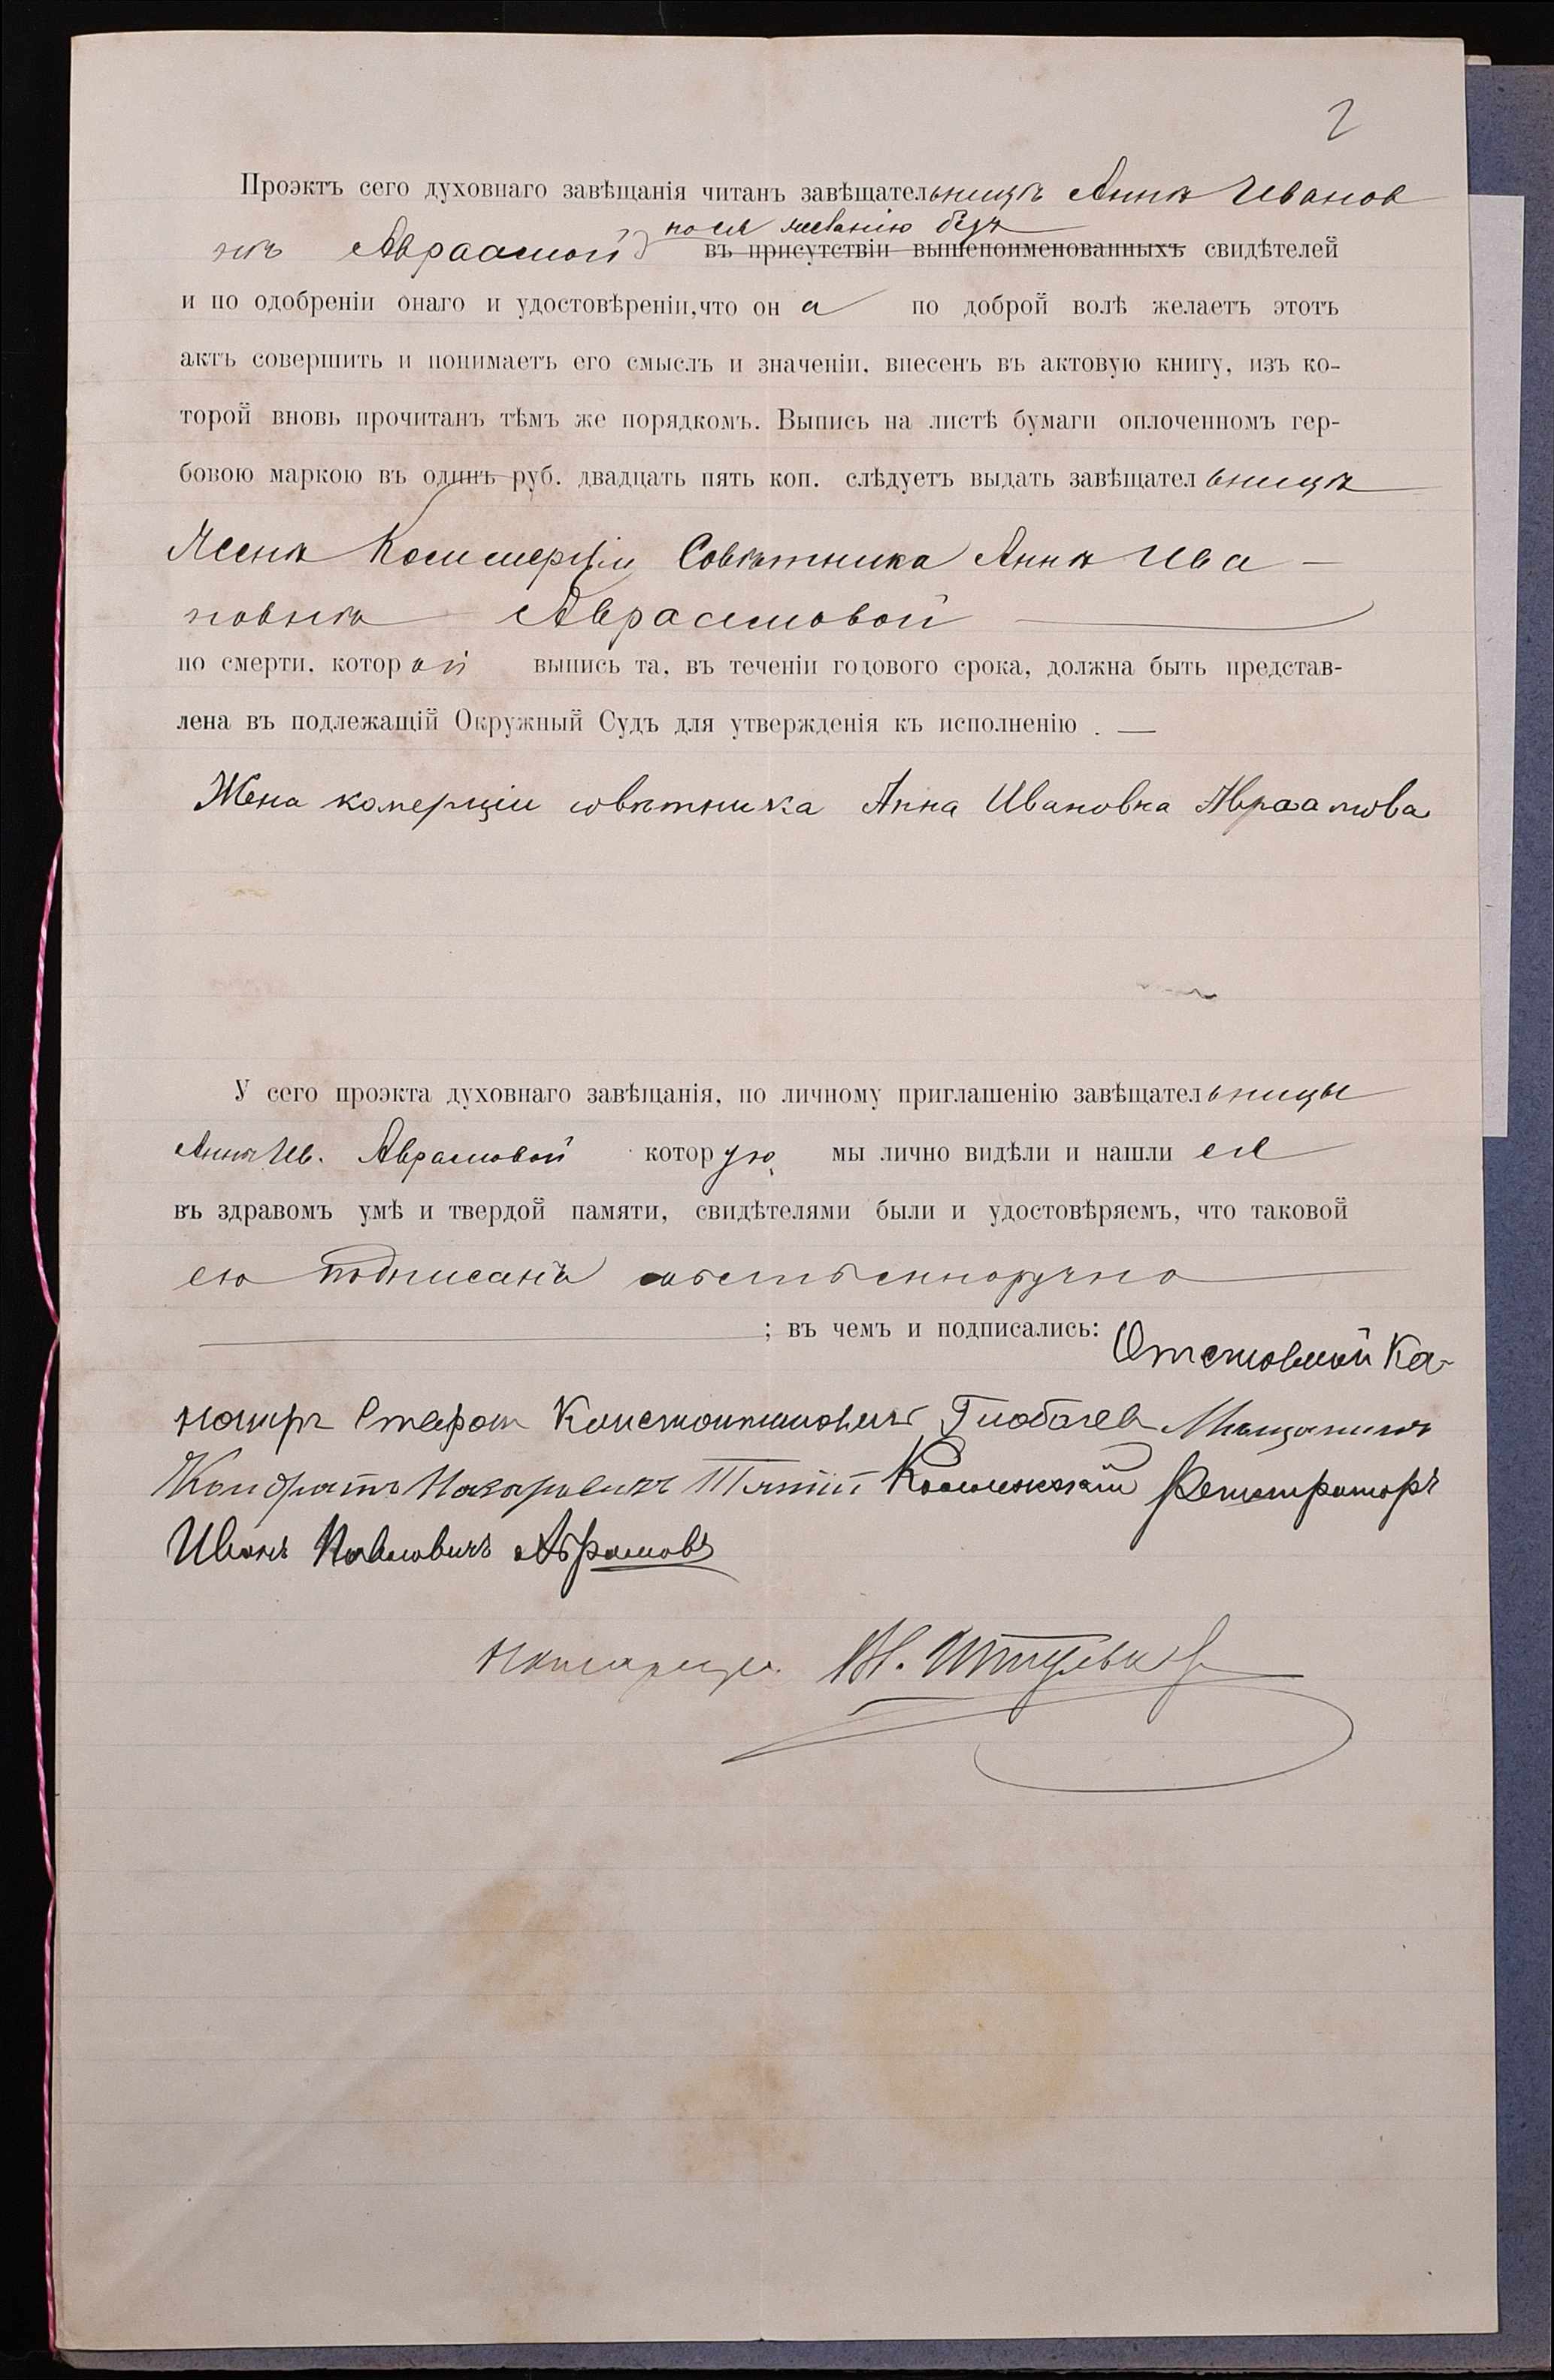 2
Проэктъ сего духовнаго завѣщанія читанъ завѣщательницѣ Аннѣ Иванов
нѣ Авраамовой по ея желанію безъ
въ присутствіи вышепоименованныхъ свидѣтелей
и по одобреніи онаго и удостовѣреніи, что он а по доброй волѣ желаетъ этотъ
актъ совершить и понимаетъ его смыслъ и значеніи, внесенъ въ актовую книгу, изъ ко-
торой вновь прочитанъ тѣмъ же порядкомъ. Выпись на листѣ бумаги оплоченномъ гер-
бовою маркою въ одинъ руб. двадцать пять коп. слѣдуетъ выдать завѣщательницѣ
Женѣ Коммерціи Совѣтника Аннѣ Ива—
новнѣ Аврамовой
по смерти, которой выпись та, въ теченіи годового срока, должна быть представ-
лена въ подлежащій Окружный Судъ для утвержденія къ исполненію. —
Жена комерціи совѣтника Анна Ивановна Авраамова
У сего проэкта духовнаго завѣщанія, по личному приглашенію завѣщательницы
Анны Ив. Аврамовой которую мы лично видѣли и нашли ея
въ здравомъ умѣ и твердой памяти, свидѣтелями были и удостовѣряемъ, что таковой
ею подписанъ собственноручно
; въ чемъ и подписались: Отставной Ка-
нониръ Стефан Константиновичъ Мѣщанинъ
Кондратъ Назаровичъ Коллежскій Регистраторъ
Иванъ Павловичъ Абрамовъ